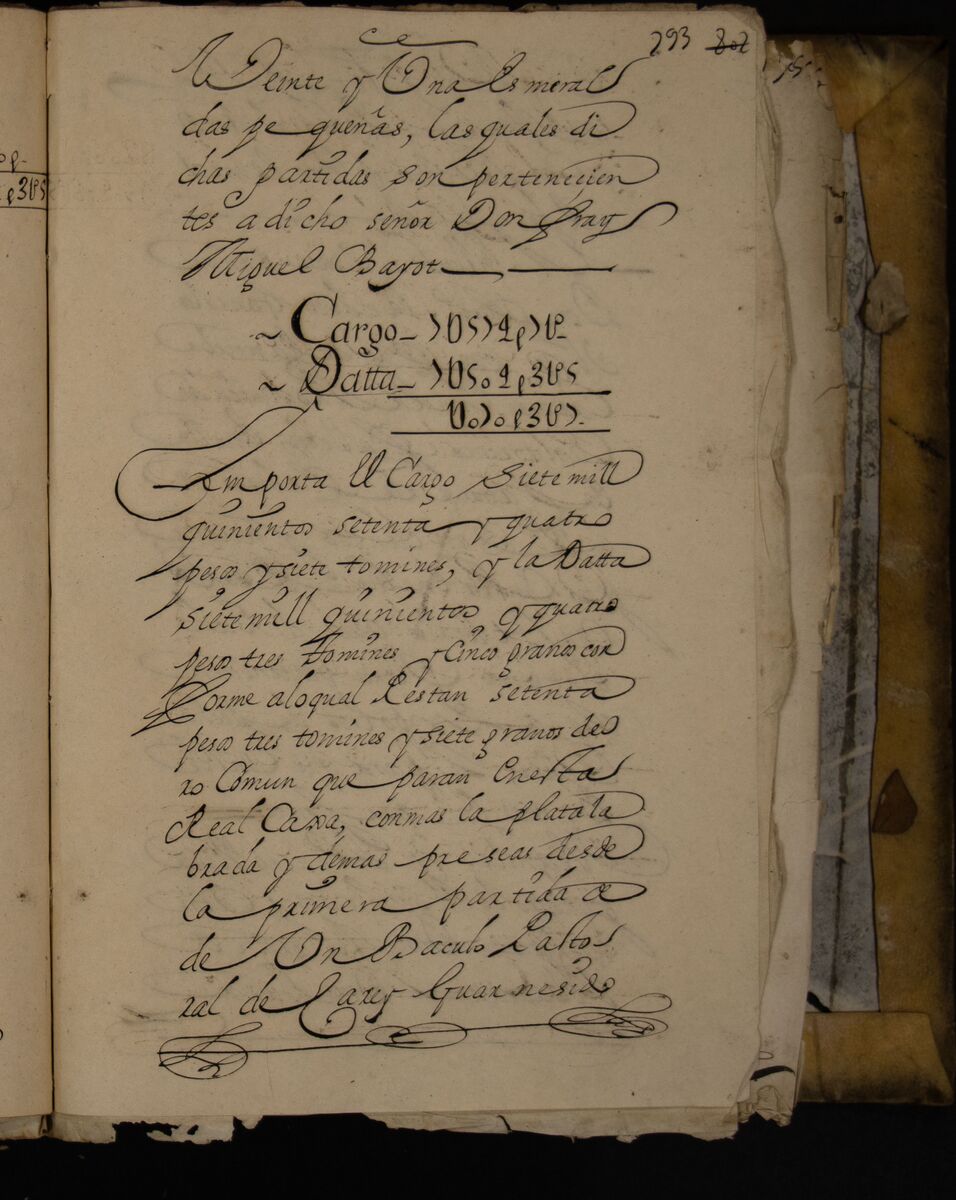 293 202
Veinte y Una Esmeral
das pequeñas, las quales di
chas partidas son pertenecien
tes a dicho señor Don fray
Miguel Bayot
Cargo
Datta
Importa El Cargo Siete mill
quinientos setenta y quatro
pesos y siete tomines, y la Datta
siete mill quinientos y quatro
pesos tres tomines y Cinco granos con
forme a lo qual Restan setenta
pesos tres tomines y siete granos de o
ro Comun que paran En esta
Real Caxa, con mas la plata la
brada y demas preseas desde
la primera partida de
de Un Baculo Pasto
ral de Carey Guarnesido